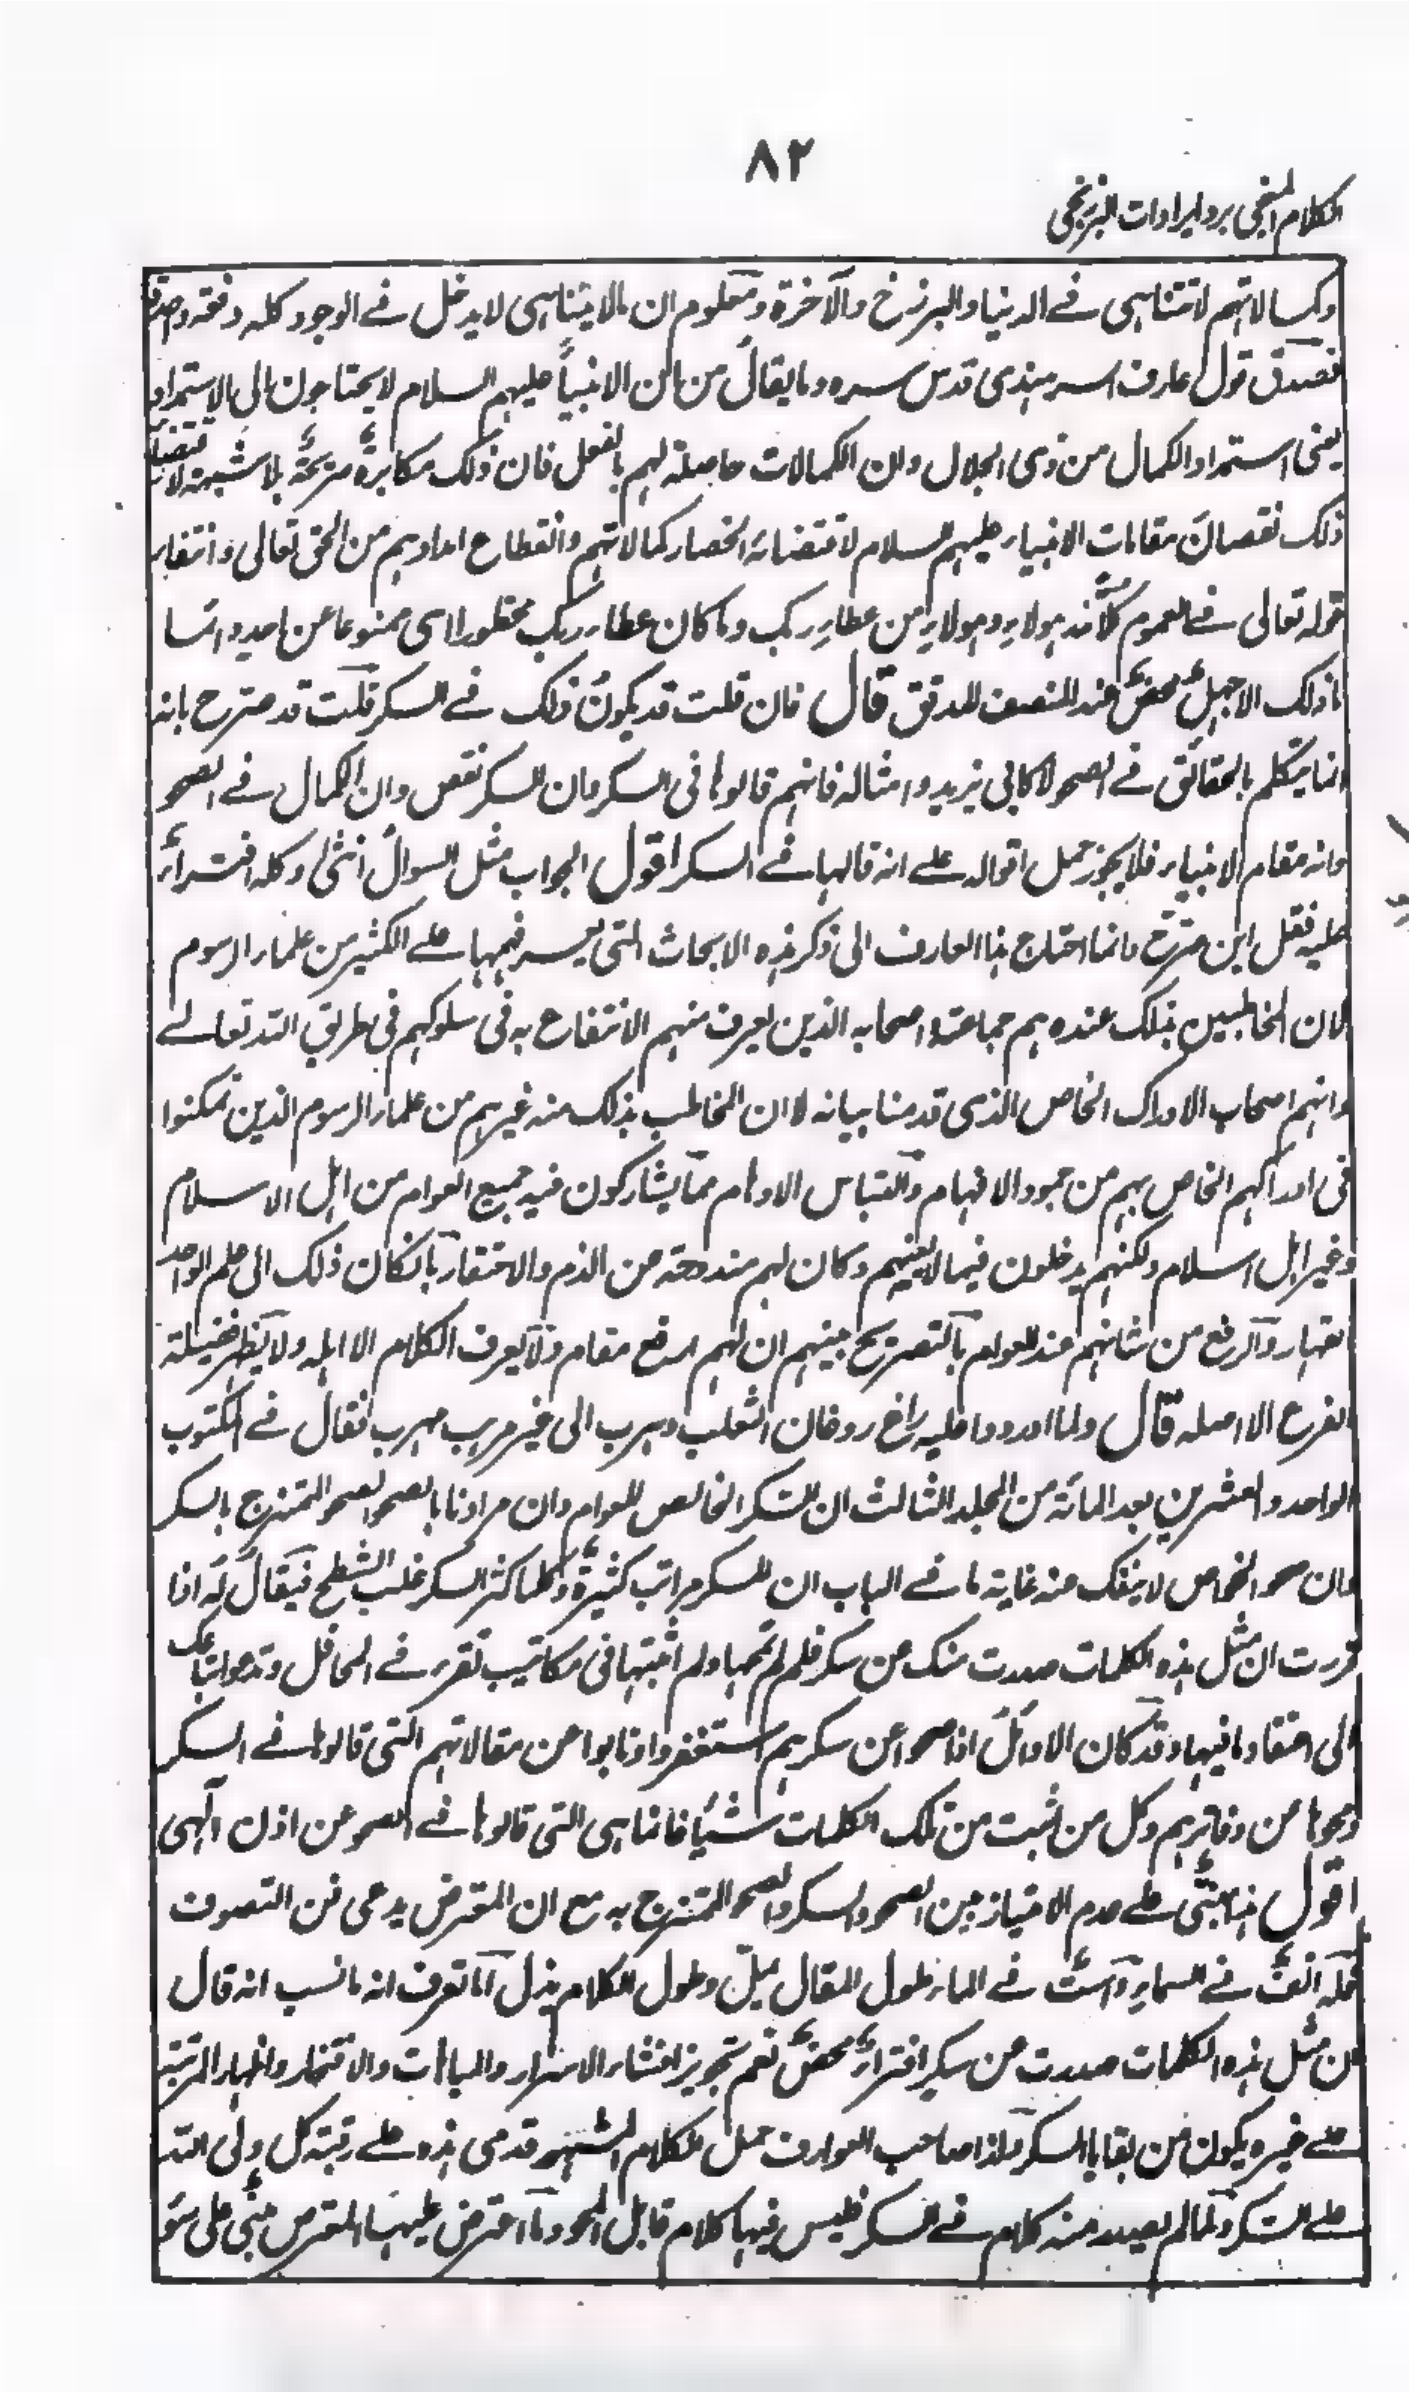 ٨٢
الكلام المنجى برد ايرادات البرزنجى
وكمالاتهم لا تتناهى فے الدنيا والبرزخ والآخرة ومعلوم ان مالا يتناهى لا يدخل فے الوجود كله دفعة واحدة
فصدق قول عارف السرهندى قدس سره وما يقال من ان الانبيأ عليهم السلام لا يحتاجون الى الاستمداد
يعنى استمداد الكمال من ذى الجلال وان الكمالات حاصلة لهم بالفعل فان ذلك مكابرةٌ صريحةٌ بلا شبهة لاقتضاء
ذلك نقصان مقامات الانبياء عليهم السلام لاقتضائه انحصار كمالاتهم وانقطاع امدادهم من الحق تعالى وانتفاء
قوله تعالى فے العموم كلاًّ نمد هولاءِ وهولاءِ من عطاءِ ربك وما كان عطاء ربك محظورا اى ممنوعا عن احد واتسا
ما ذلك الا جهلٌ محضٌ عند المنصف المدقق قال فان قلت قد يكون ذلك فے السكر قلت قد صرح بانه
انما يتكلم بالحقائق فے الصحو لا كابى يزيد وامثاله فانهم قالوها فى السكر وان السكر نقص وان الكمال فے الصحو
وانه مقام الانبياء فلا يجوز حمل اقواله علے انه قالها فے السكر اقول الجواب مثل السوال انثى وكله افتراءٌ
عليه فقل اين صرّح وانما احتاج هذا العارف الى ذكر هذه الابحاث التى يعسر فهمها علے الكثير من علماء الرسوم
لان المخاطبين بتلك عنده هم جماعة اصحابه الذين يعرف منهم الانتفاع به فى سلوكهم فى طريق الله تعالے
وانهم اصحاب الادراك الخاص الذى قدمنا بيانه لا ان المخاطب بذلك منه غيرهم من علماء الرسوم الذين تمكنوا
فى ادراكهم الخاص بهم من جمود الافهام والتباس الاوهام مما يشاركون فيه جميع العوام من اهل الاسلام
وغير اهل اسلام ولكنهم يدخلون فيما لا يعنيهم وكان لهم مندوحة من الذم والاحتقار باتكان ذلك الى علم الواحد
القهار والرفع من شانهم عند العوام بالتصريح بينهم ان لهم ارفع مقام ولا يعرف الكلام الا اهله ولا يظهر فضيلة
الفرع الا اصله قال ولما اوردوها عليه راغ روغان الثعلب وهرب الى غير مهرب فقال فے المكتوب
الواحد والعشرين بعد المائة من المجلد الثالث ان السكر الخالص للعوام وان مرادنا بالصحو الصحو الممتزج بالسكر
وان صحو الخواص لا ينفك عنه غاية ما فے الباب ان للسكر مراتب كثيرة وكلما كثر السكر غلب الشطح فيقال له اذا
قررت ان مثل هذه الكلمات صدرت منك عن سكر فلم لم تمحها ولم اثبتها فى مكاتيب تقرء فے المحافل وتدعو اتباعك
الى اعتقاد ما فيها وقد كان الاوائل اذا صحوا عن سكرهم استغفروا وتابوا من مقالاتهم التى قالوها فے السكر
ومحوها من دفاترهم وكل من اثبت من تلك الكلمات شيأ فانما هى التى قالوها فے الصحو عن اذن الٓهى
اقول هذا مبنىٌّ علے عدم الامتياز بين الصحو والسكر والصحو الممتزج به مع ان المعترض يدعى فن التصوف
فله انفٌ فے السماء واستٌ فے الماء طول المقال يملّ وطول الكلام يذل اما تعرف انه ما نسب انه قال
ان مثل هذه الكلمات صدرت عن سكر افتراءٌ محضٌ نعم تجويز افشاء الاسرار والمباهات والافتخار واظهار المرتبة
علے غيره يكون من بقايا السكر ولذا صاحب العوارف حمل الكلام الشهير قدمى هذه علے رقبة كل ولى الله
علے السكر ولما لم يصدر منه كلام فے السكر فليس فيها كلام قابل المحو وما اعترض عليها المعترض مبنىٌّ على سوء